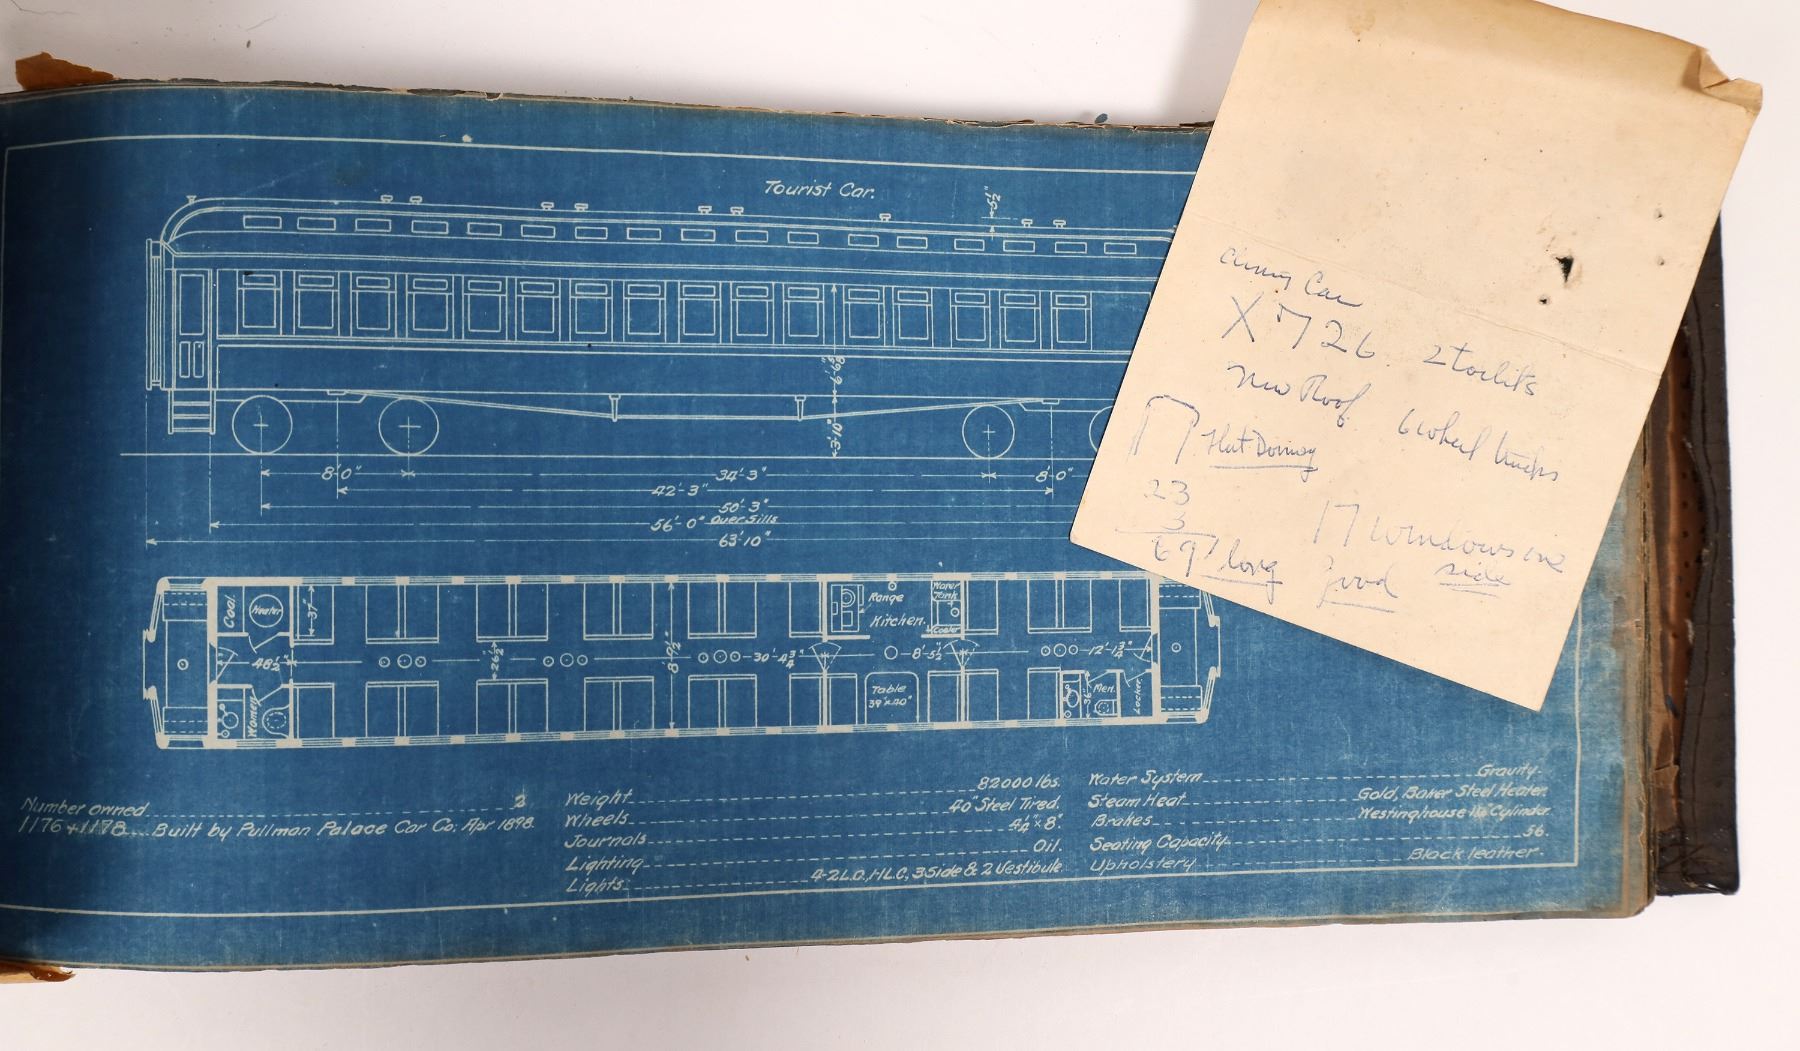 Tourist Car.
5½"
6'-6⅝"
3'-10"
8'-0"
34'-3"
8'-0"
42'-3"
50'-3"
56'-0" Over Sills
63'-10"
Coal.
Heater
37"
46½"
Women
26½"
8'-9½"
30'-4¾"
Range
Kitchen.
Water Tank
Cooler
8'-5½"
12'-1¾"
Table
39"x40"
36"
Men.
Locker.
Number owned 2
1176 + 1178 Built by Pullman Palace Car Co; Apr 1898.
Weight 82000 lbs.
Wheels 40" Steel Tired.
Journals 4¼"x8".
Lighting Oil.
Lights 4-2L.O., H.L.C., 3 Side & 2 Vestibule.
Water System Gravity.
Steam Heat Gold, Baker Steel Heater.
Brakes Westinghouse Cylinder.
Seating Capacity 56.
Upholstery Black leather.
Car
X 726 2 toilits
New Roof 6 wheel trucks
Flat
23
3
69' long
17 windows one
good side